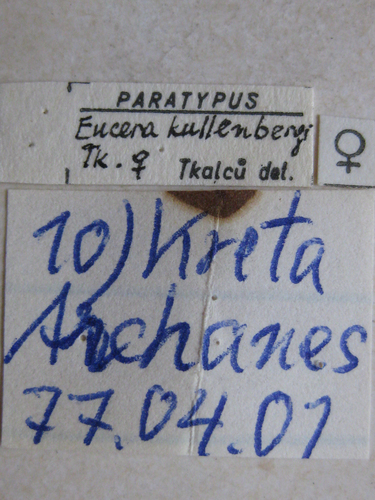 PARATYPUS
Eucera kullenbergi
Tk. ♀ Tkalců det.
♀
10) Kreta
Archanes
77.04.01